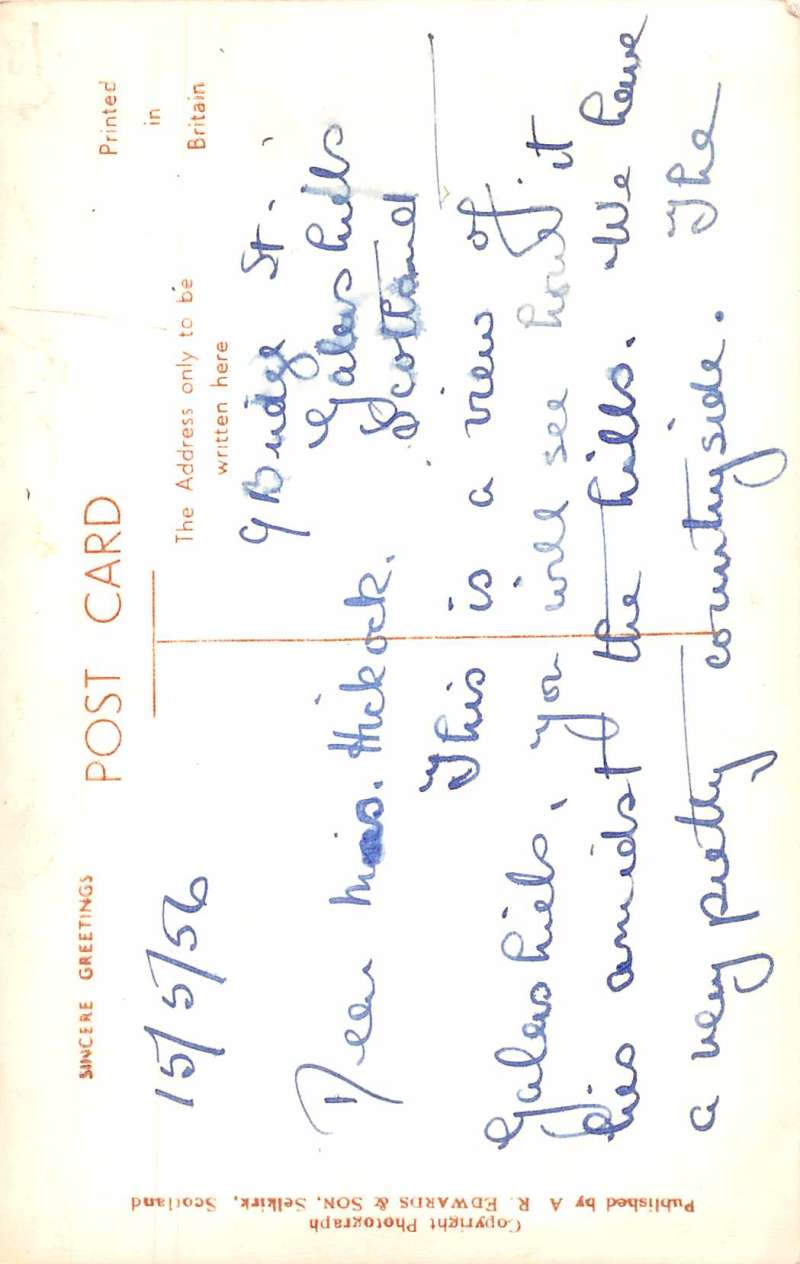 SINCERE GREETINGS
POST CARD
Printed
in
Britain
The Address only to be
written here
15/5/56
9 Bridge St.
Galashiels
Scotland
Dear Miss. Hickock.
This is a view of
Galashiels, you will see how it
lies amidst the hills. We have
a very pretty countryside. The
Copyright Photograph
Published by A. R. EDWARDS & SON, Selkirk, Scotland